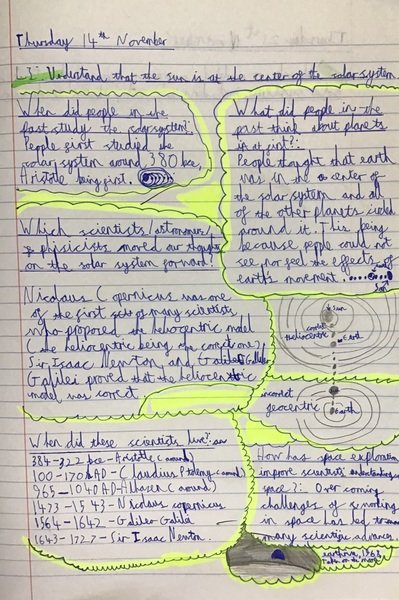 Thursday 14th November
L.I: Understand that the sun is at the center of the solar system
When did people in the
past study the solarsystem?:
People first studied the
solar system around 380 bce,
Aristotle being first.
What did people in the
past think about planets
in at first?:
People thought that earth
was in the center of
the solar system and all
of the other planets
around it. This being
because people could not
see nor feel the effects of
earth's movement.
Sun
Which scientists/astronomers/
physicists moved our thoughts
on the solar system forward?
Nicolaus Copernicus was one
of the first sets of many scientists
who proposed the heliocentric model
(the heliocentric being the correct one)
Sir Isaac Newton and Galileo
Galilei proved that the heliocentric
model was correct
Sun
correct
heliocentric
Earth
incorrect
geocentric
earth
When did these scientists live?:
384-322 bce-Aristotle (around)
100-170 AD-Claudius Ptolemy (around)
965-1040 AD-Alhazen (around)
1473-1543-Nicolaus copernicus
1564-1642-Galileo Galilei
1643-1727-Sir Isaac Newton.
How has space exploration
impore scientists understanding
space?: Over coming
challenges of surviving
in space has led to
many scientific advances.
earthrise, 1968
Taken on the moon